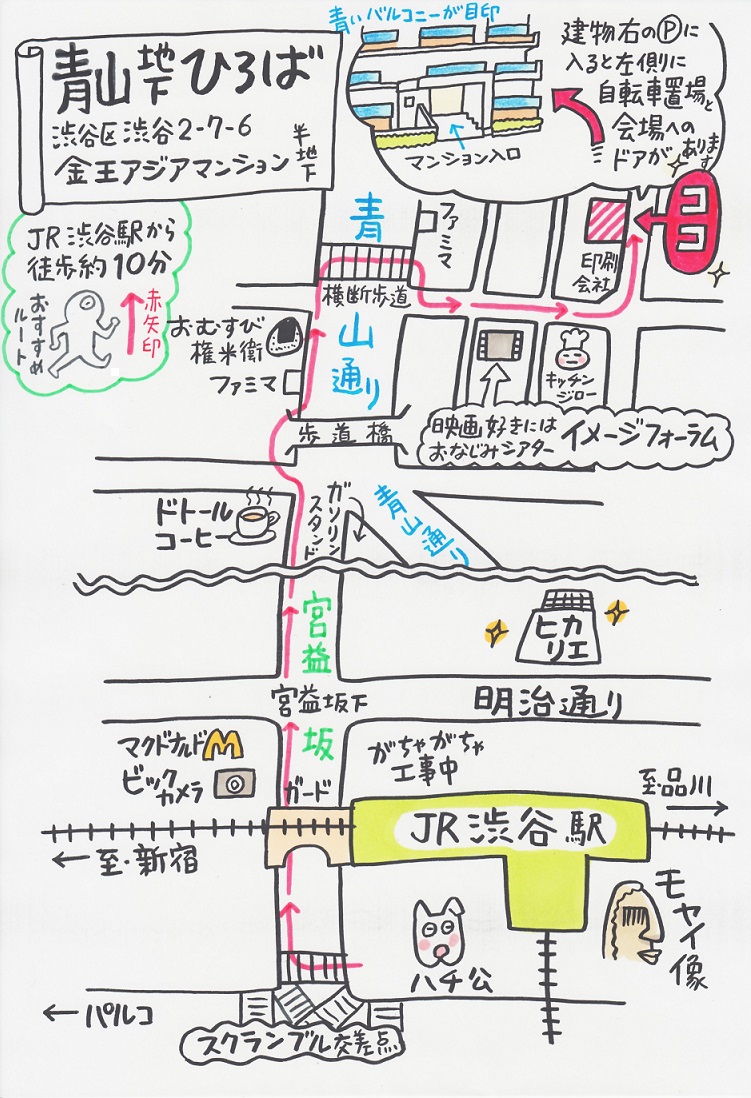 青いバルコニーが目印
建物右のⓅに
入ると左側に
自転車置場と
会場への
ドアがあります
マンション入口
青山地下ひろば
渋谷区渋谷2-7-6
金王アジアマンション
半地下
JR渋谷駅から
徒歩約10分
おすすめ
ルート
赤矢印
青
山
通り
ファミマ
印刷
会社
ココ
横断歩道
おむすび
権米衛
ファミマ
キッチン
ジロー
歩道橋
映画好きには
おなじみシアター
イメージフォーラム
ドトール
コーヒー
ガソリン
スタンド
青山通り
宮益
坂
ヒカ
リエ
宮益坂下
明治通り
マクドナルド
M
ビック
カメラ
ガード
がちゃがちゃ
工事中
至品川
JR渋谷駅
至・新宿
モヤイ像
ハチ公
パルコ
スクランブル交差点